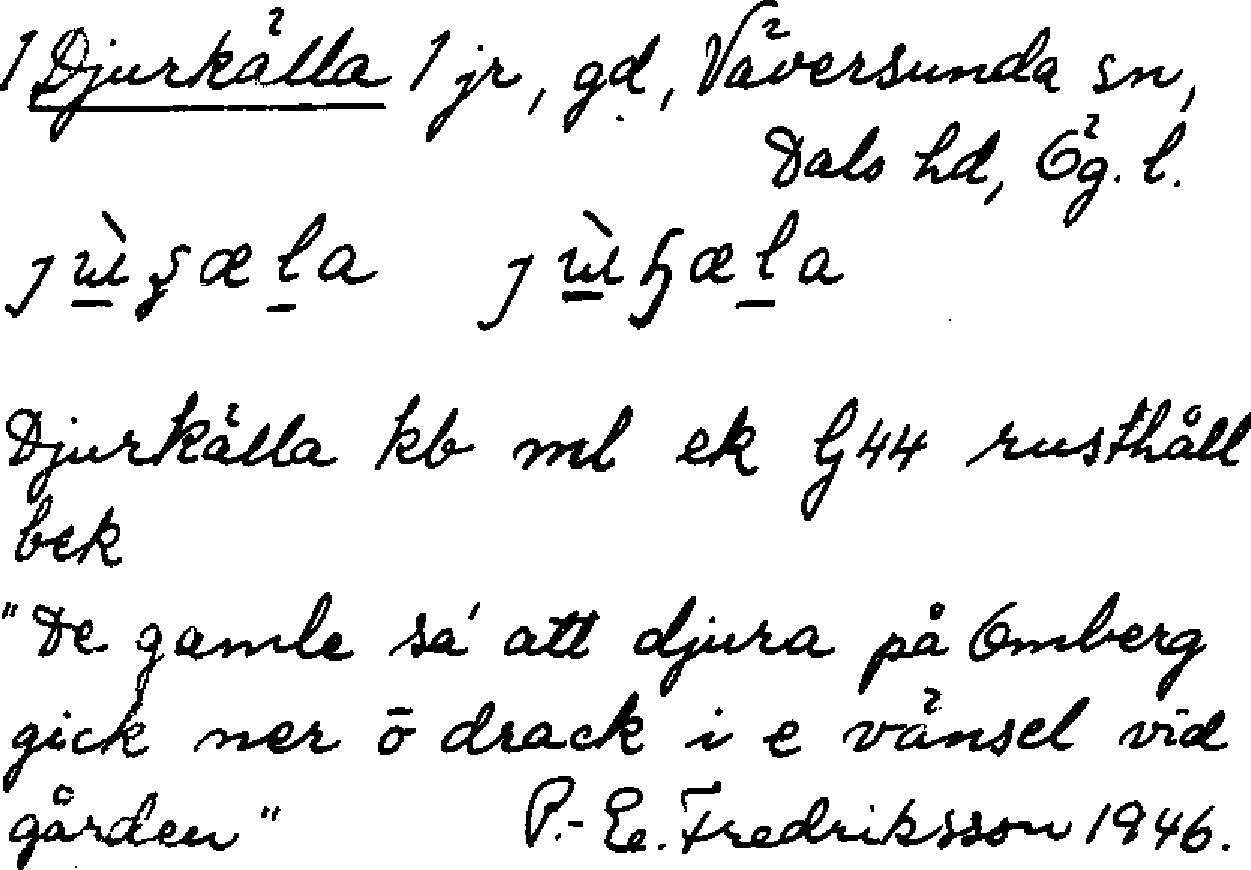 1 Djurkälla 1 jr, gd, Väversunda sn,
Dals hd, Ög. l.
Djurkälla kb ml ek G44 rusthåll
bek
"De gamle sa' att djura på Omberg
gick ner ō drack i e vänsel vid
gården" P.-E. Fredriksson 1946.